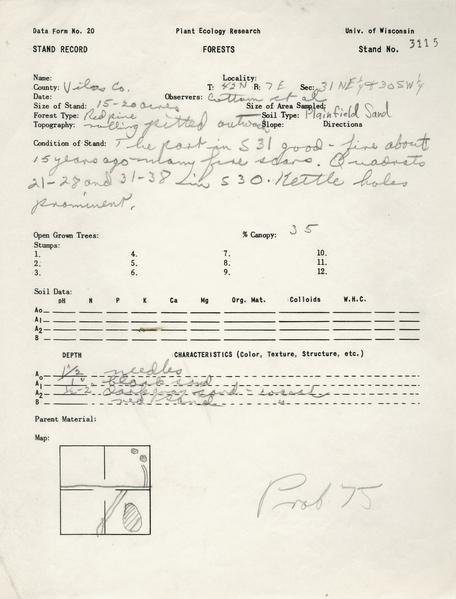 Data Form No. 20 Plant Ecology Research Univ. of Wisconsin
STAND RECORD FORESTS Stand No. 3115
Name: Locality:
County: Vilas Co. T: 42N R: 7E Sec: 31 NE¼ + 30 SW¼
Date: Observers: Cottam et al
Size of Stand: 15-20 acres Size of Area Sampled:
Forest Type: Red pine Soil Type: Plainfield Sand
Topography: rolling pitted outwash Slope: Directions
Condition of Stand: The part in S 31 good - fire about
15 years ago - many fire scars. Quadrats
21-28 and 31-38 in S 30. Kettle holes
prominent.
Open Grown Trees: % Canopy: 35
Stumps:
1. 4. 7. 10.
2. 5. 8. 11.
3. 6. 9. 12.
Soil Data:
pH N P K Ca Mg Org. Mat. Colloids W.H.C.
Ao
A1
A2
B
DEPTH CHARACTERISTICS (Color, Texture, Structure, etc.)
Ao 1½ needles
A1 1" black sand
A2 sand
B red sand "
Parent Material:
Map:
Prob 75